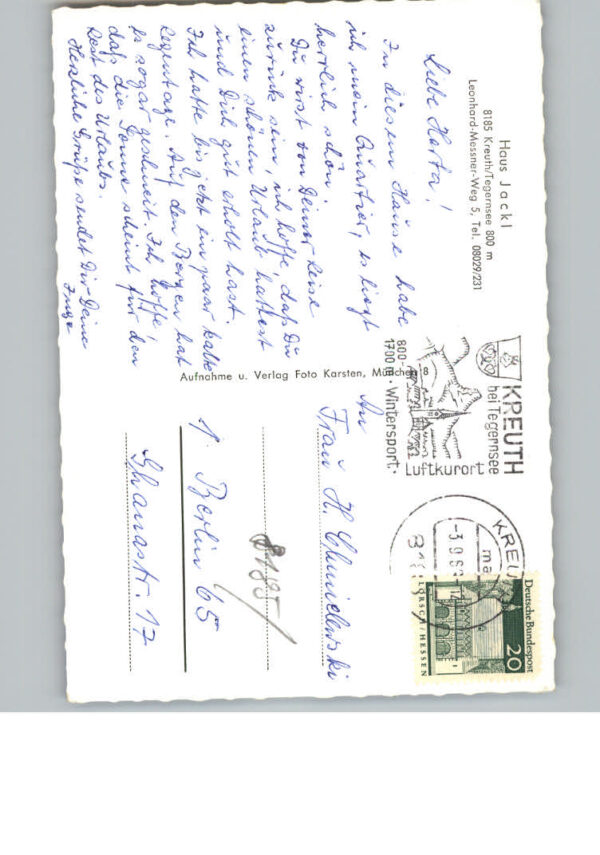 Haus Jackl
8185 Kreuth/Tegernsee 800 m
Leonhard-Messner-Weg 5, Tel. 08029/231
Liebe Herta!
In diesem Hause habe
ich mein Quartier, es liegt
herrlich schön.
Du wirst von Deiner Reise
zurück sein, ich hoffe, daß Du
einen schönen Urlaub hattest
und Dich gut erholt hast.
Ich hatte bis jetzt ein paar kalte
Regentage. Auf den Bergen hat
es sogar geschneit. Ich hoffe,
daß die Sonne scheint für den
Rest des Urlaubs.
Herzliche Grüße sendet Dir Deine
Inge
Aufnahme u. Verlag Foto Karsten, München 8
KREUTH
bei Tegernsee
Luftkurort
800-
1700 m · Wintersport ·
KREU
-3.9.6
Deutsche Bundespost
20
LORSCH/HESSEN
An
Frau H. Chmielewski
8185/
1 Berlin 65
Ghanastr. 17